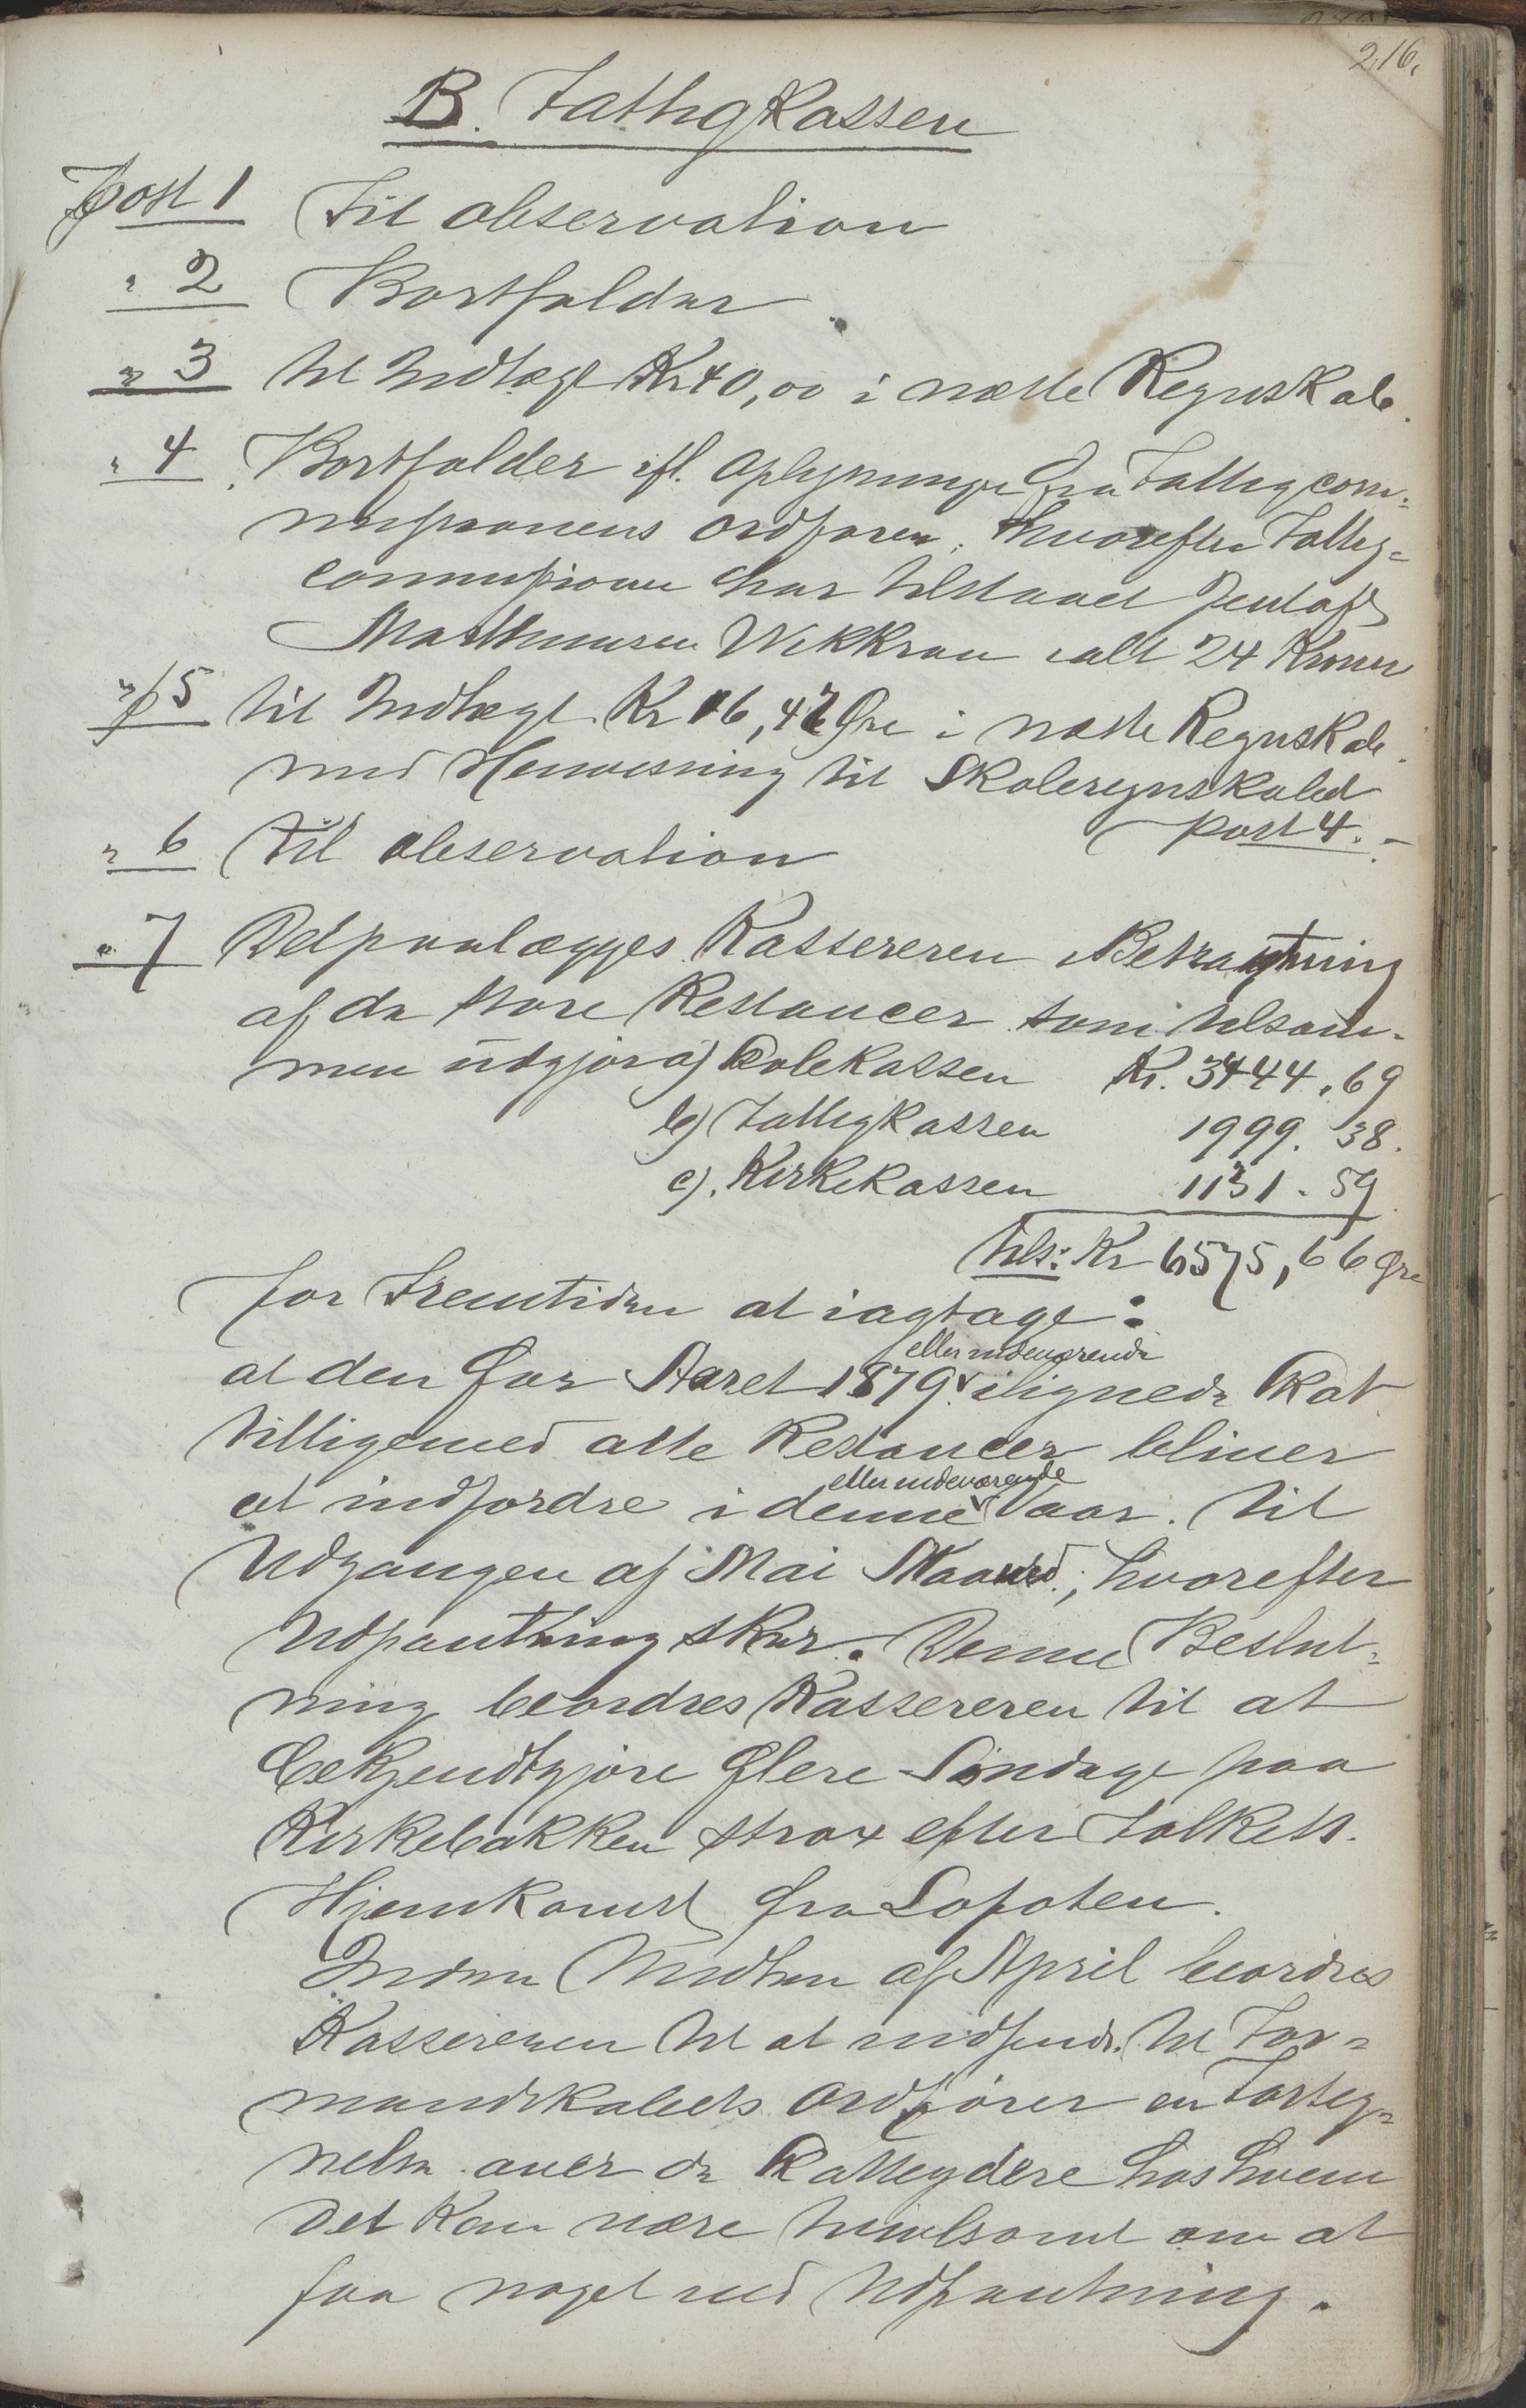 216.
B. Fattigkassen
Post 1 Til observation
" 2 Bortfalder
" 3 til Indtægt Kr 40,00 i næste Regnskab.
" 4 Bortfalder ifl. Oplysninger fra Fattigcom-
missionens Ordfører, hvorefter Fattig-
commissionen har tilstaaet
Mathisen ialt 24 Kroner
" 5 til Indtægt Kr 16, Øre i næste Regnskab
med Henvisning til Skoleregnskabet
Post 4. -
" 6 Til observation
" 7 Det paalægges Kassereren i Betragtning
af de store Restancer som tilsam-
men udgjør a) Skolekassen Kr. 3444,69
b) Fattigkassen 1999. 38.
c). Kirkekassen 1131. 59
tils: Kr 6575,66 Øre
for Fremtiden at iagtage:
eller indeværende
at den for Aaret 1879 ilignede Skat
tilligemed alle Restancer bliver
eller indeværende
at indfordre i denne Vaar. til
Udgangen af Mai Maaned; hvorefter
Udpantning sker. Denne Beslut-
ning beordres Kassereren til at
bekjendtgjøre flere Søndage paa
Kirkebakken strax efter Folkets
Hjemkomst fra Lofoten.
Inden Midten af April beordres
Kassereren til at indsende til For-
mandskabets Ordfører en Forteg-
nelse over de Skatteydere hos hvem
det kan være tvivlsomt om at
faa noget ved Udpantning.